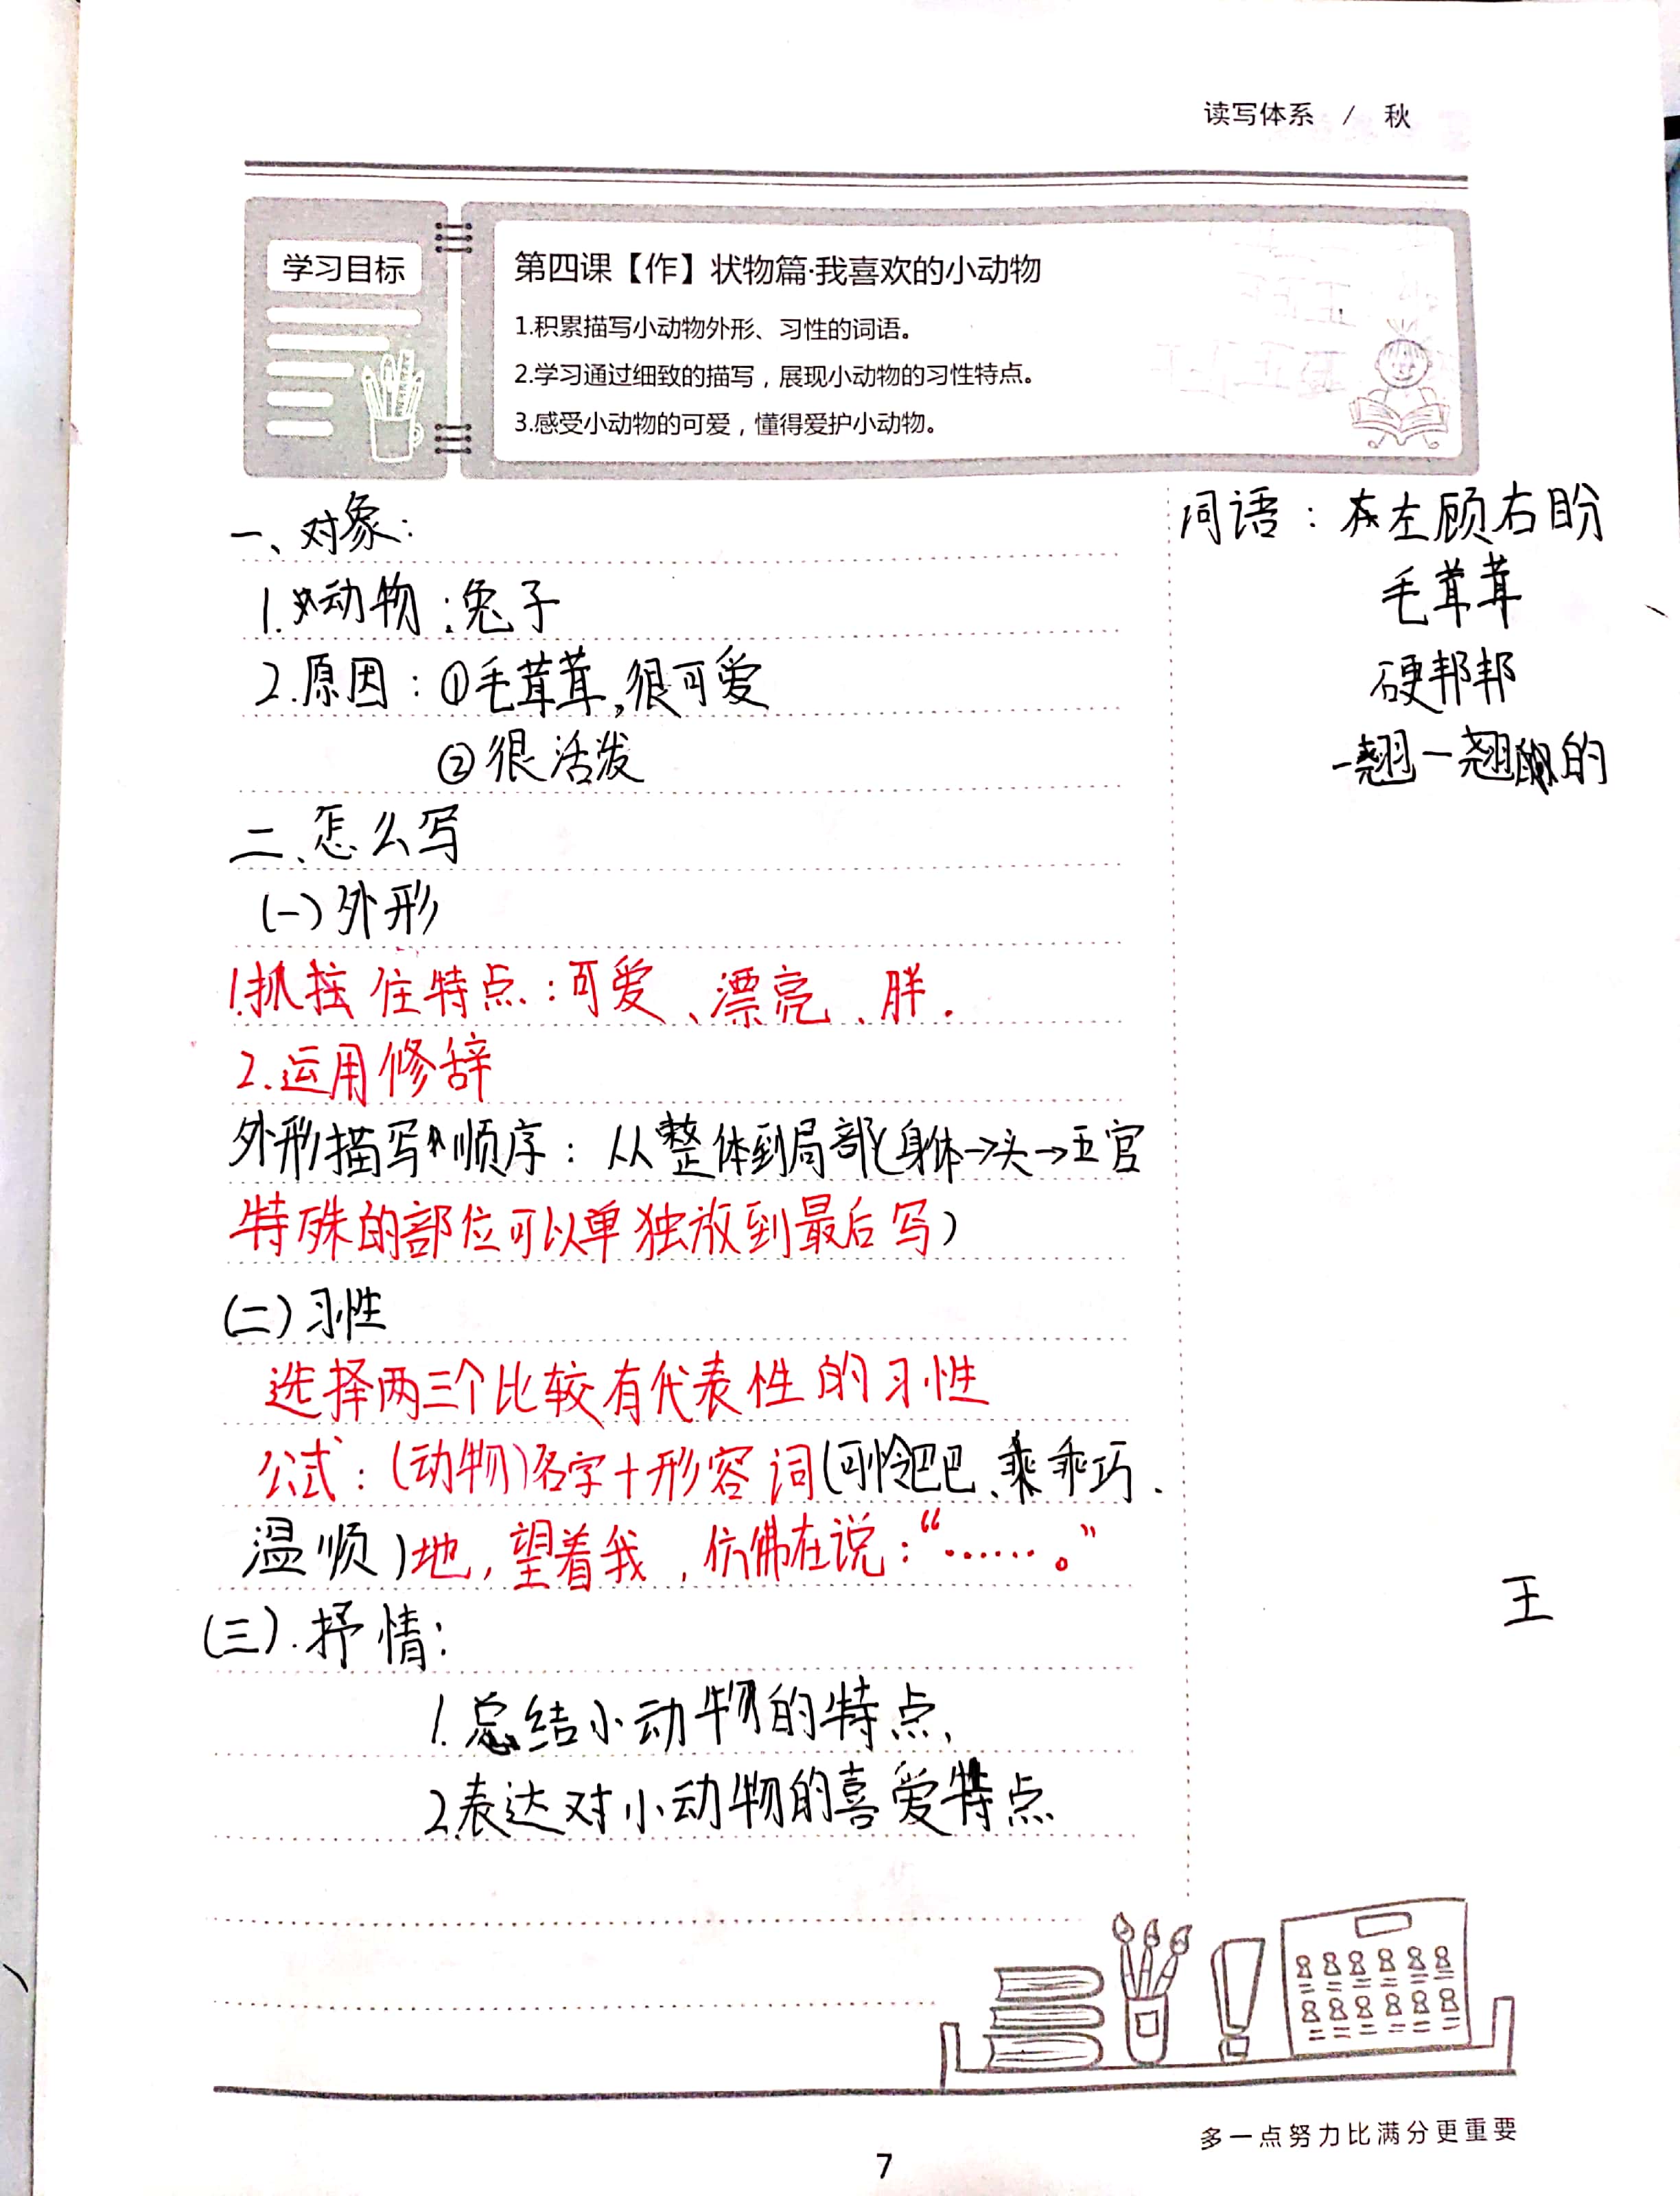 读写体系 / 秋
学习目标
第四课【作】状物篇·我喜欢的小动物
1.积累描写小动物外形、习性的词语。
2.学习通过细致的描写，展现小动物的习性特点。
3.感受小动物的可爱，懂得爱护小动物。
一、对象：
1.动物：兔子
2.原因：①毛茸茸，很可爱
②很活发
二、怎么写
(一)外形
1.抓住特点：可爱、漂亮、胖.
2.运用修辞
外形描写顺序：从整体到局部(身体→头→五官
特殊的部位可以单独放到最后写)
(二)习性
选择两三个比较有代表性的习性
公式：(动物)名字+形容词(可怜巴巴、乖巧.
温顺)地,望着我,仿佛在说：“……。”
(三).抒情：
1.总结小动物的特点、
2.表达对小动物的喜爱特点
词语：左顾右盼
毛茸茸
硬邦邦
一翘一翘的
王
多一点努力比满分更重要
7